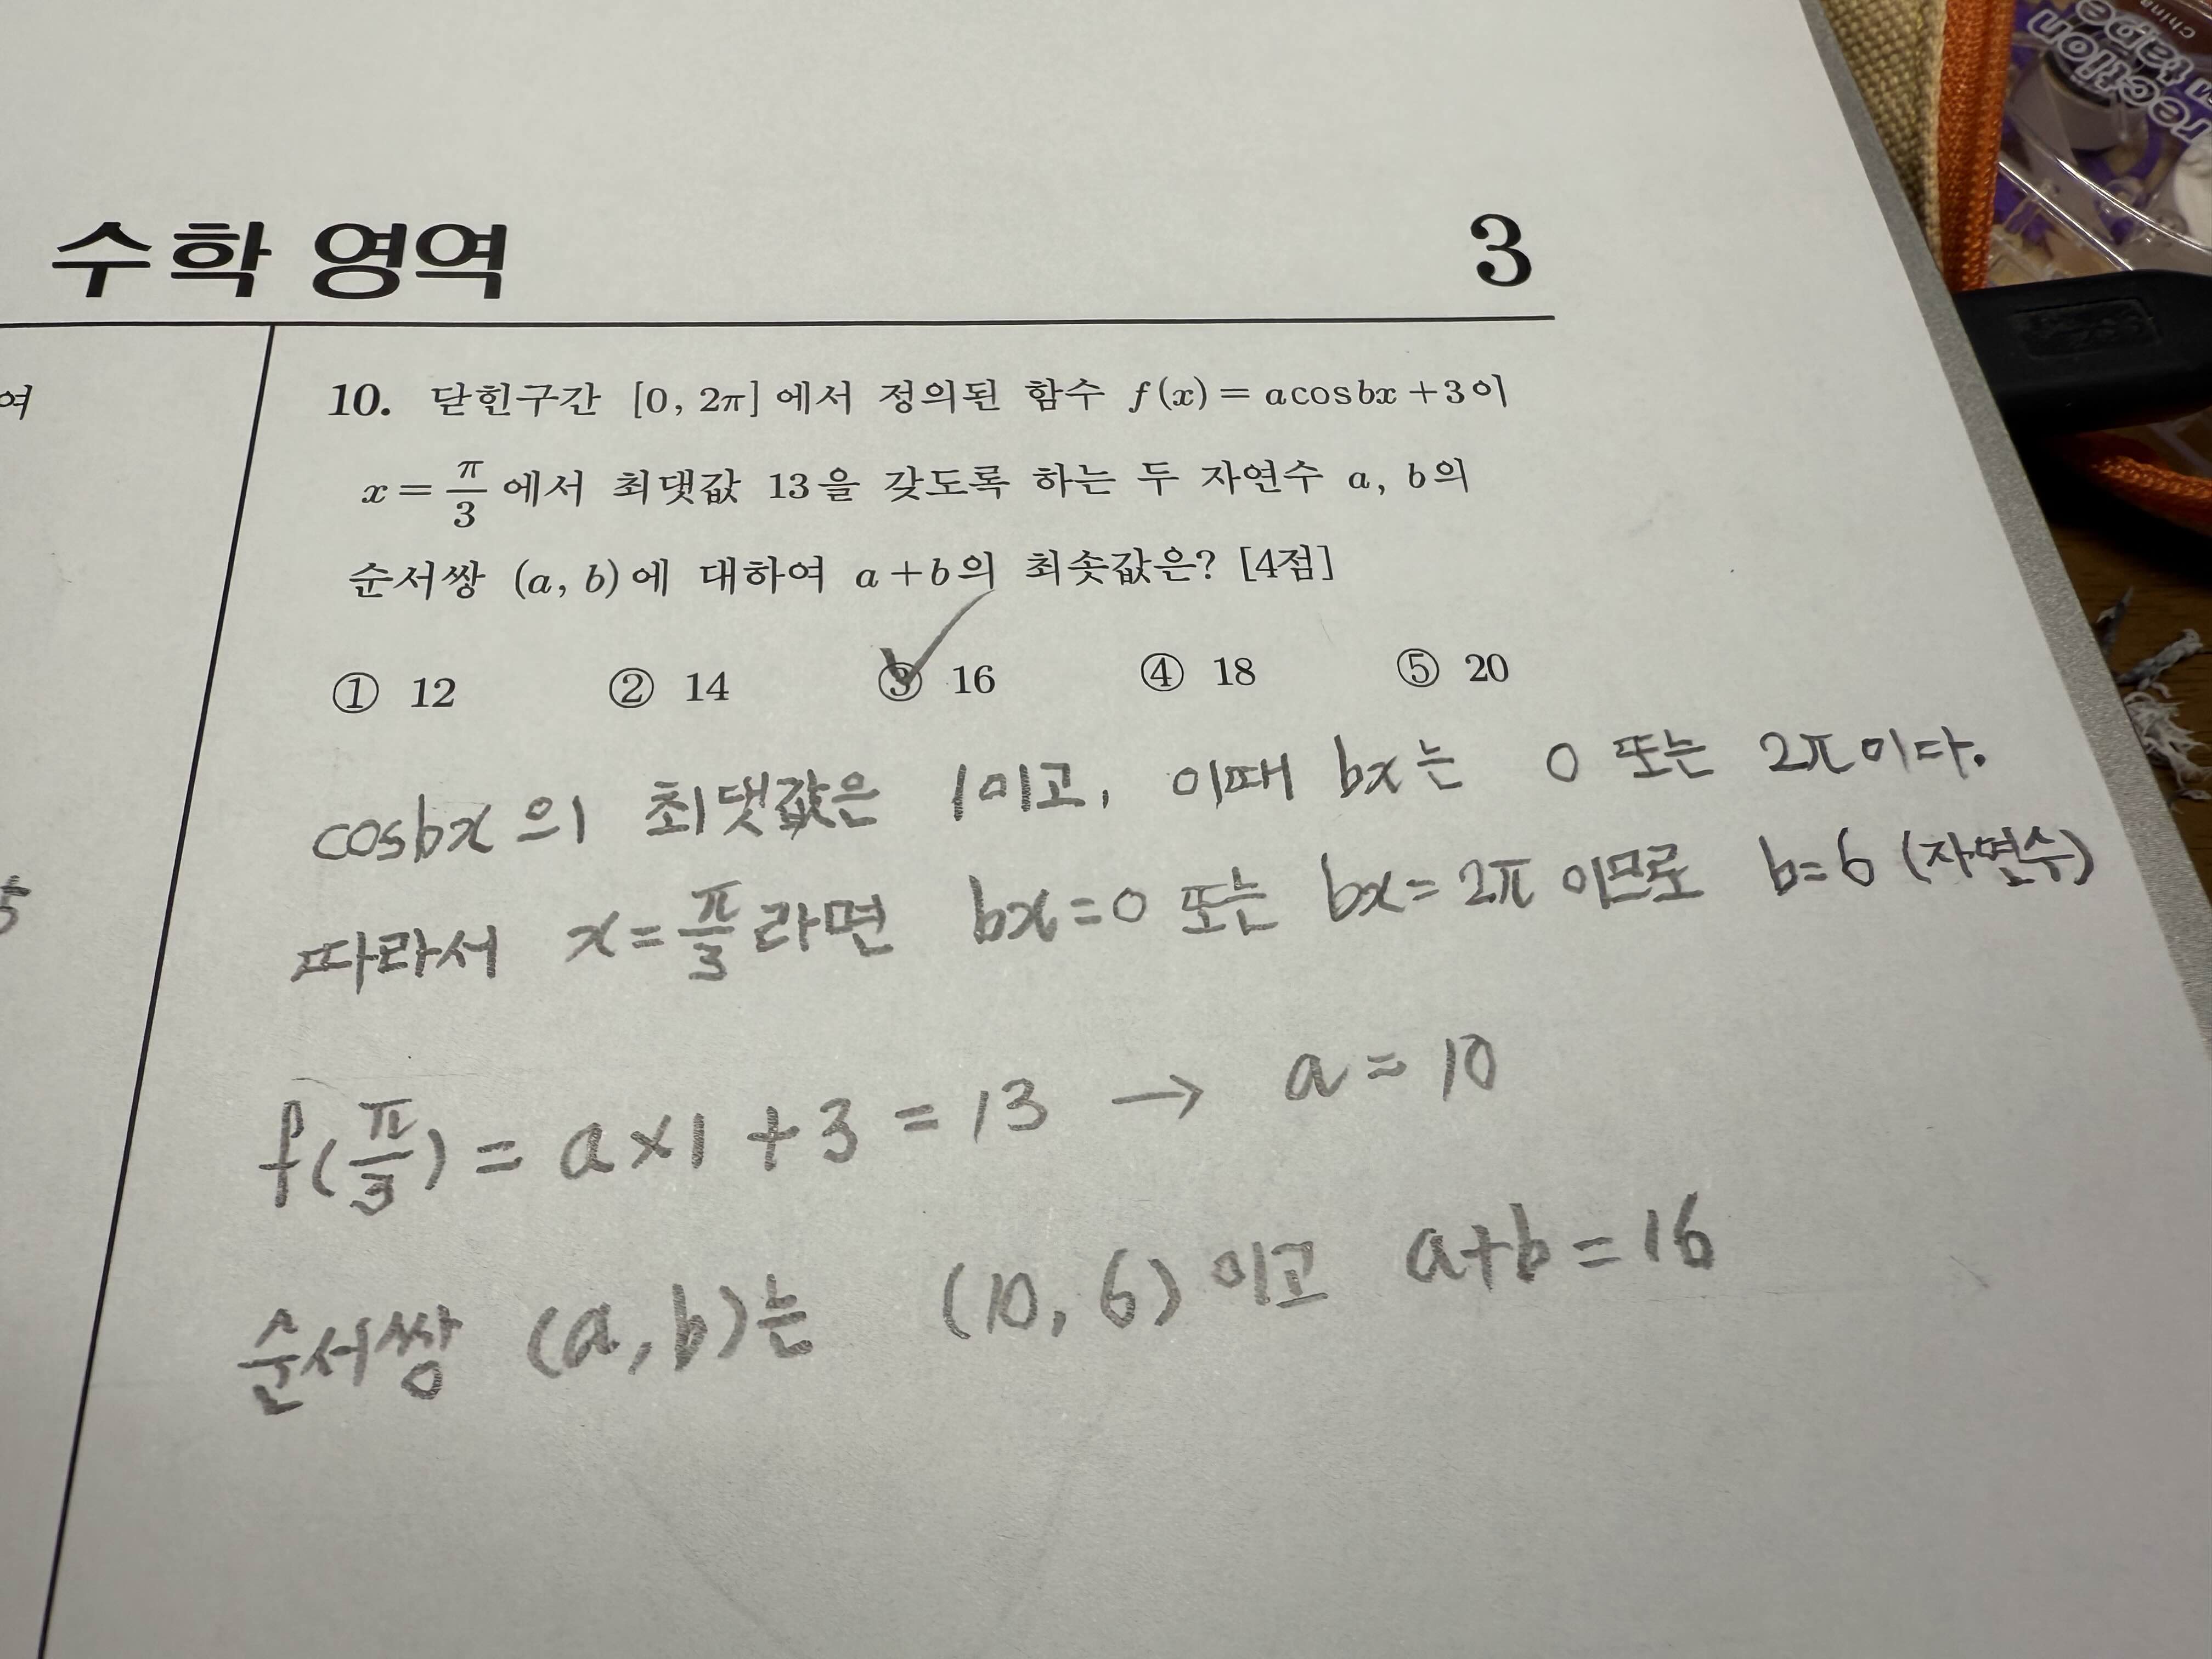 수학 영역
3
여
10. 닫힌구간 [0, 2π]에서 정의된 함수 f(x) = acosbx + 3이
x = π/3 에서 최댓값 13을 갖도록 하는 두 자연수 a, b의
순서쌍 (a, b)에 대하여 a+b의 최솟값은? [4점]
① 12 ② 14 ③ 16 ④ 18 ⑤ 20
cosbx의 최댓값은 1이고, 이때 bx는 0 또는 2π이다.
따라서 x = π/3 라면 bx=0 또는 bx=2π 이므로 b=6 (자연수)
5
f(π/3) = a×1 + 3 = 13 → a = 10
순서쌍 (a, b)는 (10, 6)이고 a+b = 16
rection
tape
china